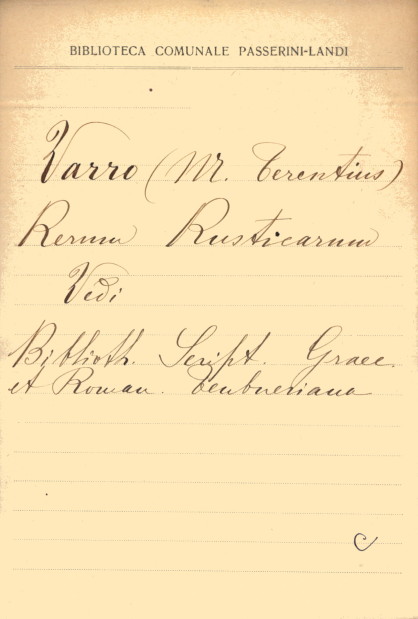 BIBLIOTECA COMUNALE PASSERINI-LANDI
Varro (M. Terentius)
Rerum Rusticarum
Vedi
Biblioth. Script. Graec.
et Roman. Teubneriana
C